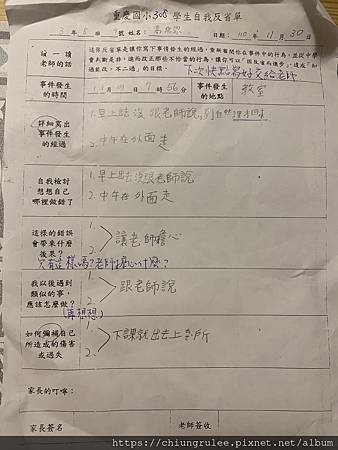 重慶國小308學生自我反省單
3年8班 號 姓名: 日期:110年11月30日
說一讀
老師的話
這張反省單是讓你寫下事情發生的經過,重新省問你在事件中的行為,並從中學
會判斷是非,進而改正那些不恰當的行為,讓你可以「因反省而進步」,達成「知
過能改,不二過」的目標。
下次快點寫好交給老師
事件發生
的時間
11月 日7時56分
事件發生
的地點
教室
詳細寫出
事件發生
的經過
1.早上去 沒跟老師說,
2.中午在外面走
自我檢討
想想自己
哪裡做錯了
1.早上出去沒跟老師說
2.中午在外面走
這樣的錯誤
會帶來什麼
後果?
1.
2.
讓老師擔心
只有這樣嗎?老師擔心什麼?
我以後遇到
類似的事,
應該怎麼做?
1.
2.
跟老師說
(再想想)
如何彌補自己
所造成的傷害
或過失
1.
2.
下課就出去上廁所
家長的叮嚀:
家長簽名
老師簽收
https://chiungrulee.pixnet.net/album